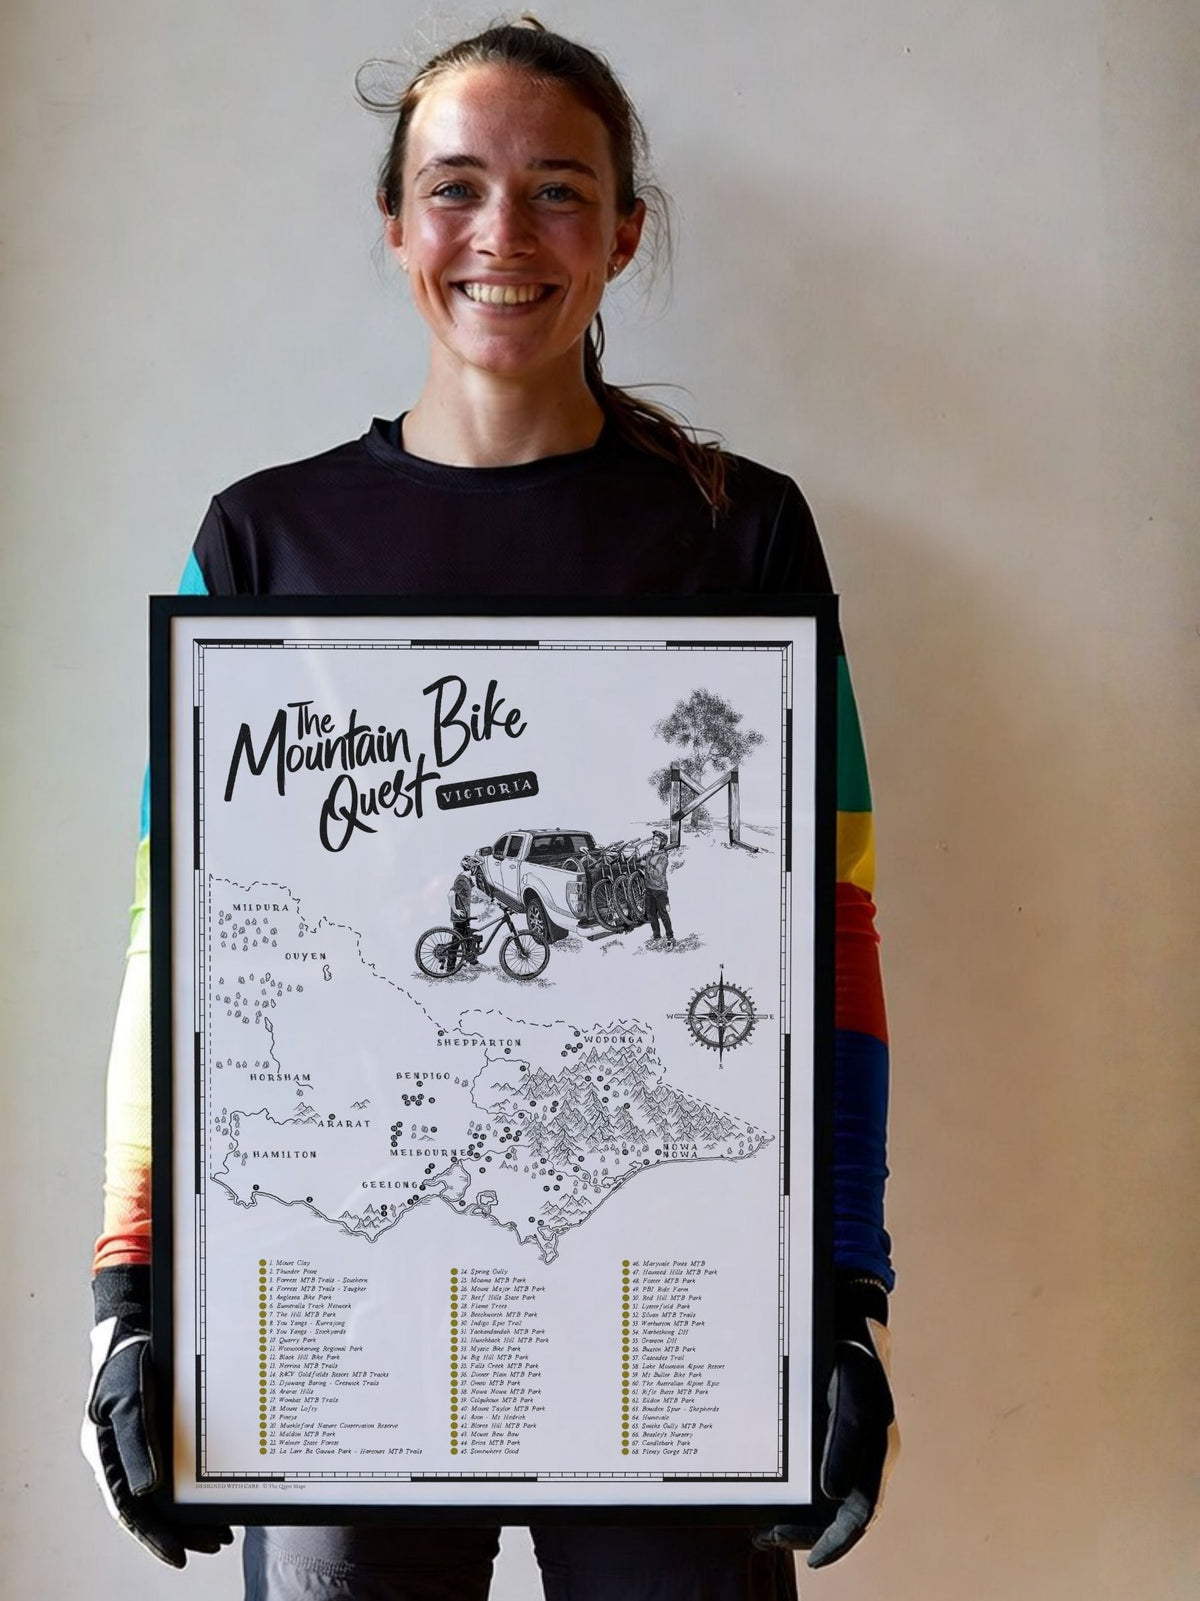 The
Mountain Bike
Quest VICTORIA
MILDURA
OUYEN
N
W E
S
SHEPPARTON
WODONGA
HORSHAM
BENDIGO
ARARAT
HAMILTON
MELBOURNE
NOWA
NOWA
GEELONG
1. Mount Clay
2. Thunder Point
3. Forrest MTB Trails - Southern
4. Forrest MTB Trails - Yaugher
5. Anglesea Bike Park
6. Eumeralla Track Network
7. The Hill MTB Park
8. You Yangs - Kurrajong
9. You Yangs - Stockyards
10. Quarry Park
11. Woowookarung Regional Park
12. Black Hill Bike Park
13. Nerrina MTB Trails
14. RACV Goldfields Resort MTB Tracks
15. Djuwang Baring - Creswick Trails
16. Ararat Hills
17. Wombat MTB Trails
18. Mount Lofty
19. Pineys
20. Muckleford Nature Conservation Reserve
21. Maldon MTB Park
22. Walmer State Forest
23. La Larr Ba Gauwa Park - Harcourt MTB Trails
24. Spring Gully
25. Moama MTB Park
26. Mount Major MTB Park
27. Reef Hills State Park
28. Flame Trees
29. Beechworth MTB Park
30. Indigo Epic Trail
31. Yackandandah MTB Park
32. Hunchback Hill MTB Park
33. Mystic Bike Park
34. Big Hill MTB Park
35. Falls Creek MTB Park
36. Dinner Plain MTB Park
37. Omeo MTB Park
38. Nowa Nowa MTB Park
39. Colquhoun MTB Park
40. Mount Taylor MTB Park
41. Avon - Mt Hedrick
42. Blores Hill MTB Park
43. Mount Baw Baw
44. Erica MTB Park
45. Somewhere Good
46. Maryvale Pines MTB
47. Haunted Hills MTB Park
48. Foster MTB Park
49. PBI Ride Farm
50. Red Hill MTB Park
51. Lysterfield Park
52. Silvan MTB Trails
53. Warburton MTB Park
54. Narbethong DH
55. Granton DH
56. Buxton MTB Park
57. Cascades Trail
58. Lake Mountain Alpine Resort
59. Mt Buller Bike Park
60. The Australian Alpine Epic
61. Rifle Butts MTB Park
62. Eildon MTB Park
63. Bowden Spur - Shepherds
64. Humevale
65. Smiths Gully MTB Park
66. Beasleys Nursery
67. Candlebark Park
68. Plenty Gorge MTB
DESIGNED WITH CARE © The Quest Maps